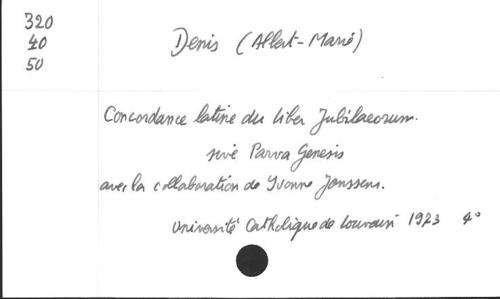 320
40
50
Denis (Albert-Marie)
Concordance latine du Liber Jubilaeorum.
sive Parva Genesis
avec la collaboration de Yvonne Janssens.
Université Catholique de Louvain 1973 4°